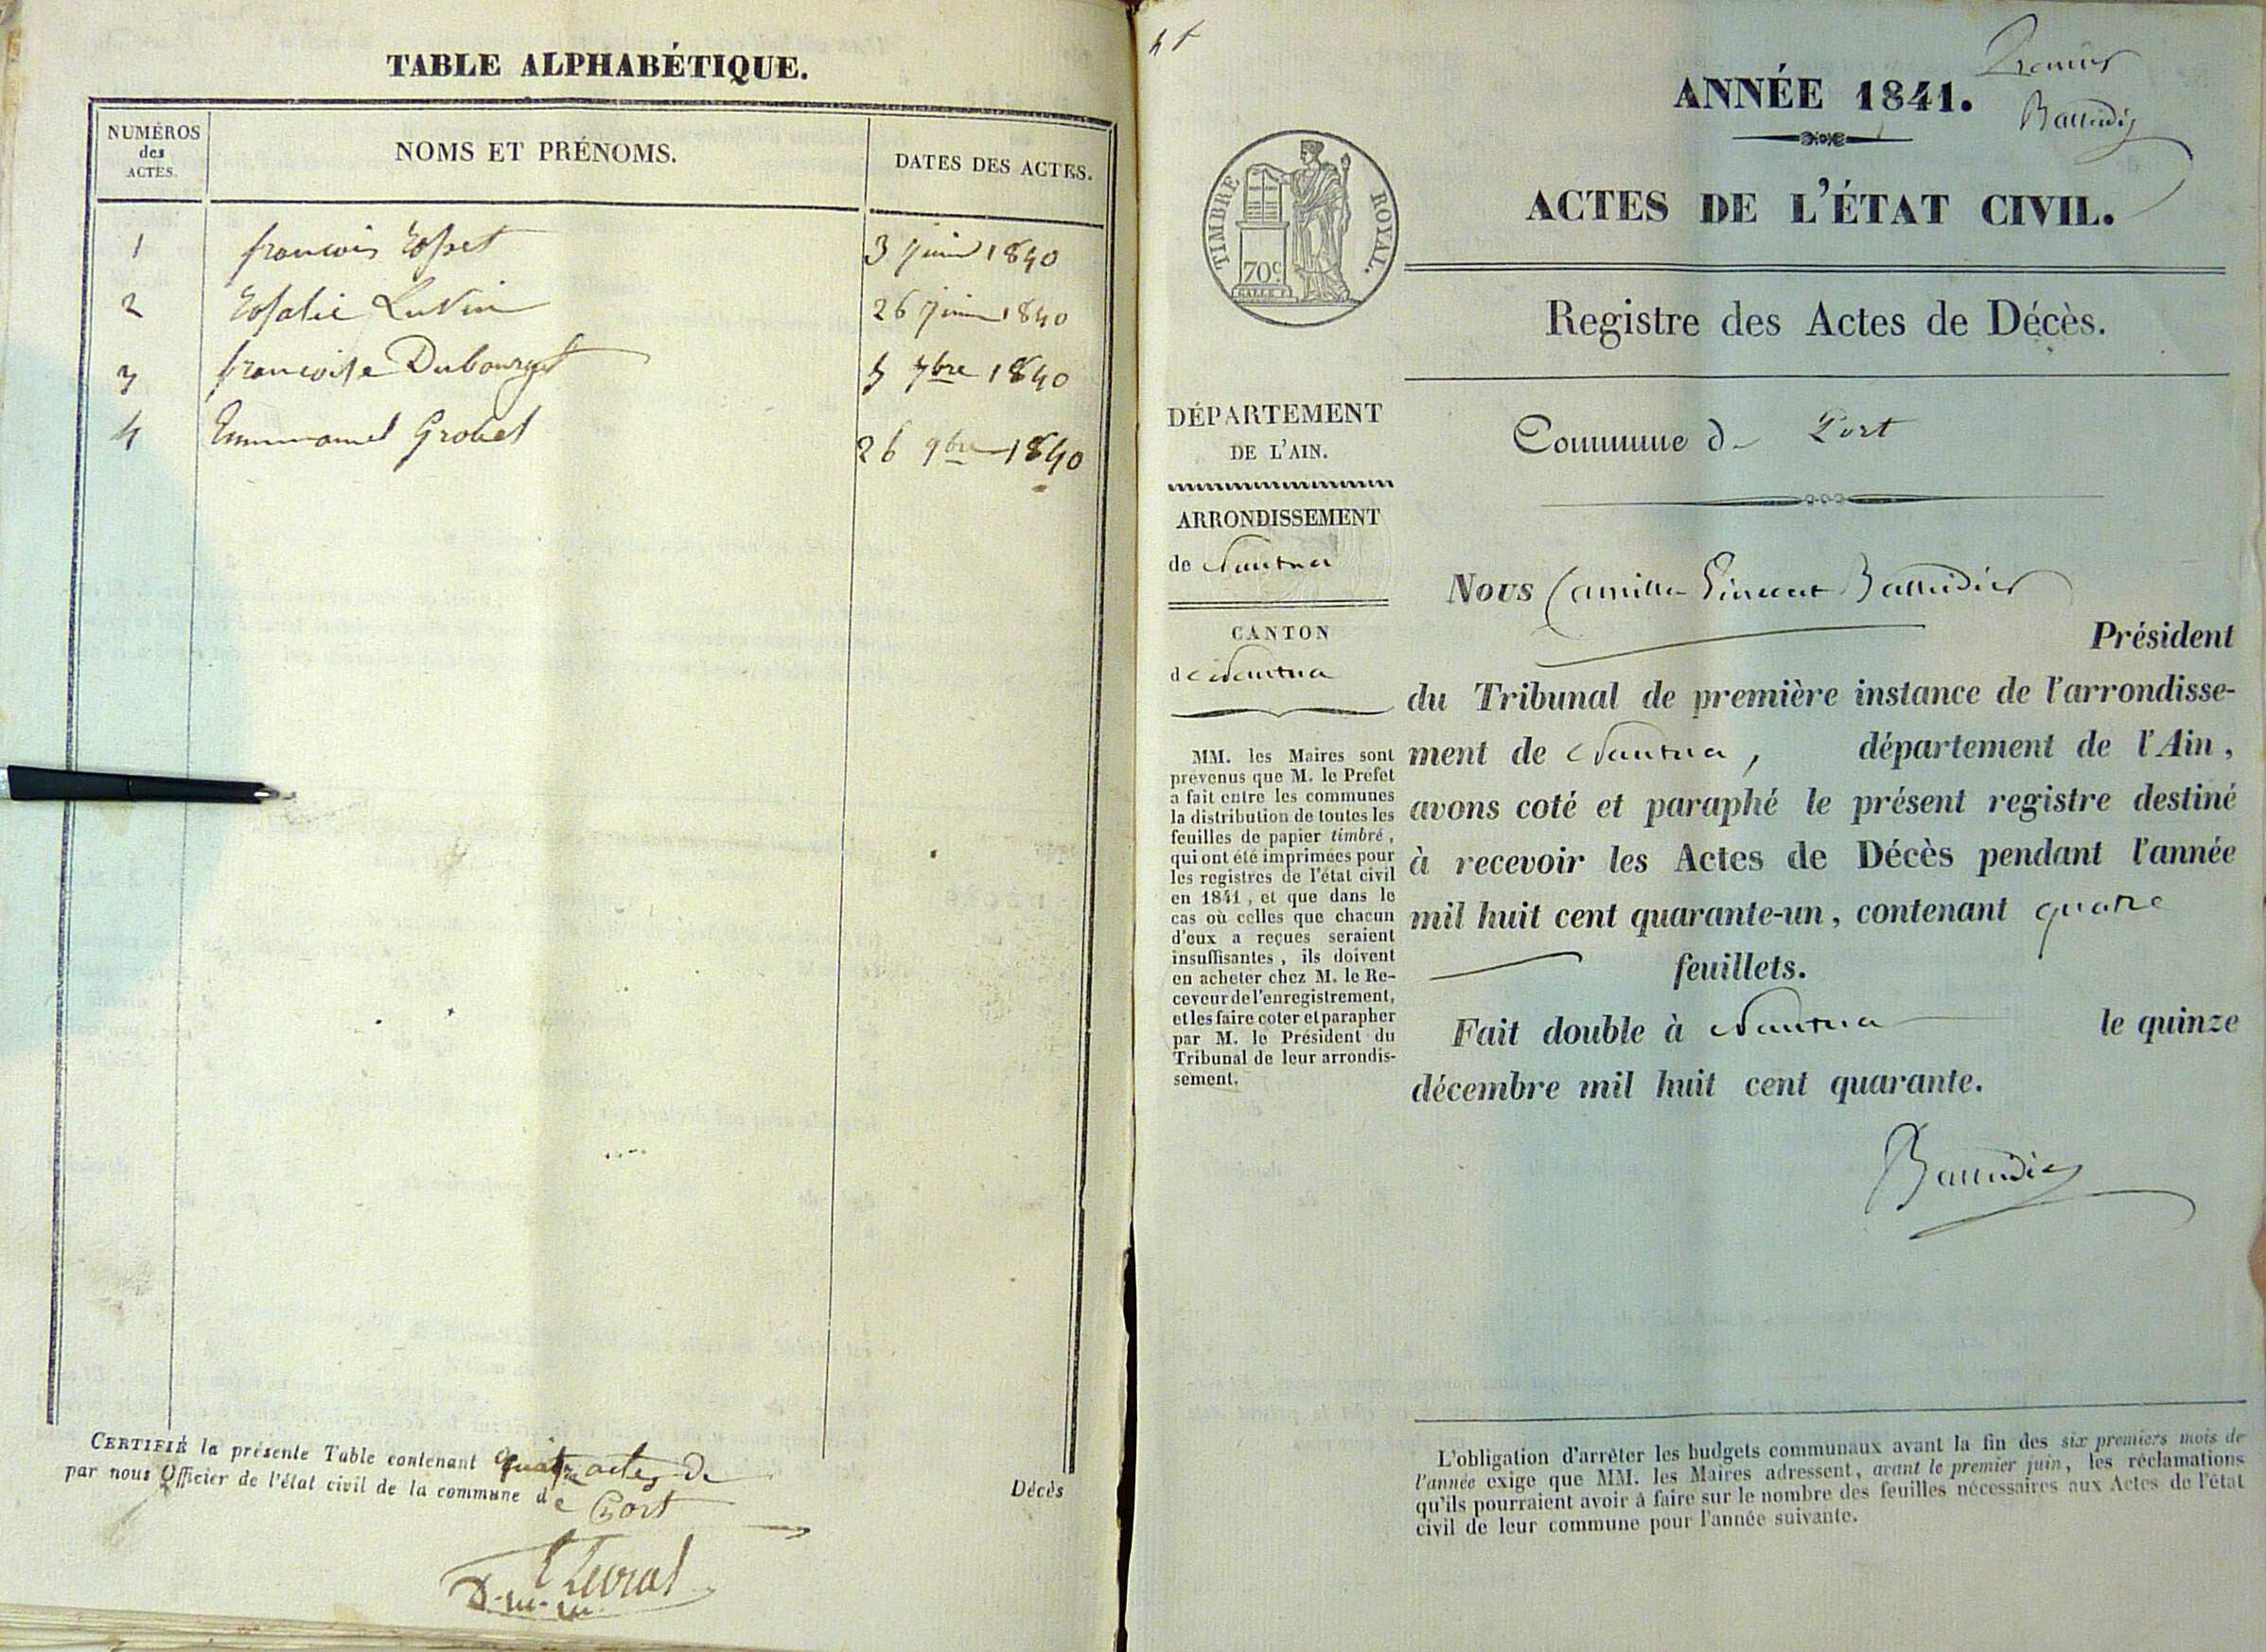 TABLE ALPHABÉTIQUE.
NUMÉROS
des
ACTES.
NOMS ET PRÉNOMS.
DATES DES ACTES.
1 francois 3 juin 1840
2 26 juin 1840
3 francoise Dubourget 5 7bre 1840
4 Emmanuel Grobet 26 9bre 1840
CERTIFIÉ la présente Table contenant quatre actes de
Décès
par nous Officier de l'état civil de la commune de Port
D. m. m.
Premier
ANNÉE 1841.
ACTES DE L'ÉTAT CIVIL.
TIMBRE ROYAL.
70c
Registre des Actes de Décès.
DÉPARTEMENT
DE L'AIN.
ARRONDISSEMENT
de Nantua
CANTON
de Nantua
MM. les Maires sont
prévenus que M. le Préfet
a fait entre les communes
la distribution de toutes les
feuilles de papier timbré,
qui ont été imprimées pour
les registres de l'état civil
en 1841, et que dans le
cas où celles que chacun
d'eux a reçues seraient
insuffisantes, ils doivent
en acheter chez M. le Re-
ceveur de l'enregistrement,
et les faire coter et parapher
par M. le Président du
Tribunal de leur arrondis-
sement.
Commune de Port
Nous Camille Vincent
Président
du Tribunal de première instance de l'arrondisse-
ment de Nantua, département de l'Ain,
avons coté et paraphé le présent registre destiné
à recevoir les Actes de Décès pendant l'année
mil huit cent quarante-un, contenant quatre
feuillets.
Fait double à Nantua le quinze
décembre mil huit cent quarante.
L'obligation d'arrêter les budgets communaux avant la fin des six premiers mois de
l'année exige que MM. les Maires adressent, avant le premier juin, les réclamations
qu'ils pourraient avoir à faire sur le nombre des feuilles nécessaires aux Actes de l'état
civil de leur commune pour l'année suivante.